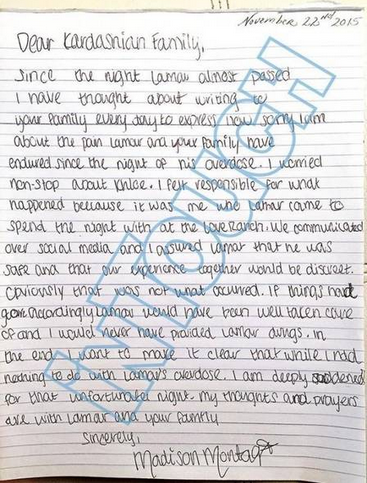 November 22nd 2015
Dear Kardashian Family,
Since the night Lamar almost passed
I have thought about writing to
your family every day to express how sorry I am
about the pain Lamar and your family have
endured since the night of his overdose. I worried
non-stop about Khloe. I felt responsible for what
happened because it was me who Lamar came to
spend the night with at the Love Ranch. We communicated
over social media and I assured Lamar that he was
safe and that our experience together would be discreet.
Obviously that was not what occurred. If things had
gone accordingly Lamar would have been well taken care
of and I would never have provided Lamar drugs. In
the end, I want to make it clear that while I had
nothing to do with Lamar's overdose. I am deeply saddened
for that unfortunate night. My thoughts and prayers
are with Lamar and your family
Sincerely,
Madison Montag
INTOUCH